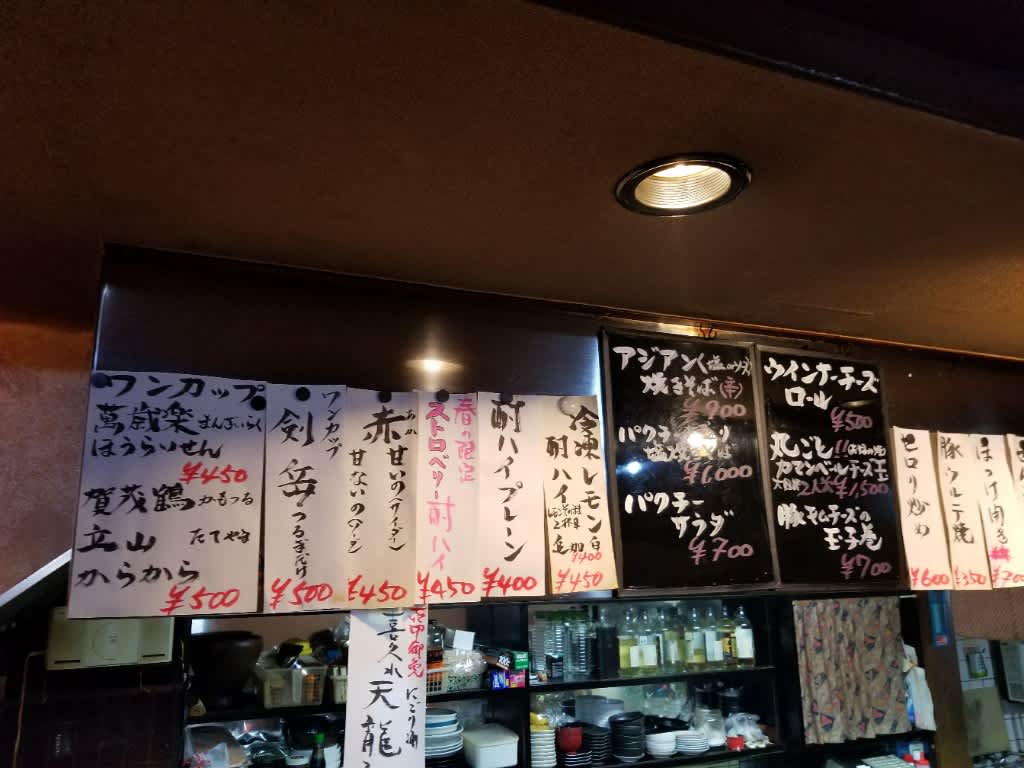 ワンカップ
萬歳楽 まんざいらく
ほうらいせん
¥450
賀茂鶴 かもつる
立山 たてやま
からから
¥500
ワンカップ
剣岳 つるぎだけ
¥500
赤
甘いの(サイダー)
甘ないの(プレーン)
¥450
春の限定
ストロベリー酎ハイ
¥450
酎ハイプレーン
¥400
冷凍レモン
酎ハイ
追加 ¥400
¥450
アジアン(塩
焼きそば
¥900
パクチー
¥1,000
パクチー
サラダ
¥700
ウインナーチーズ
ロール
¥500
丸ごと!!
カマンベールチーズ玉
2人前 ¥1,500
豚キムチーズの
玉子巻
¥700
セロリ炒め
¥600
豚ウルテ焼
¥350
ほっけ開き
¥700
喜久水 にごり酒
天龍